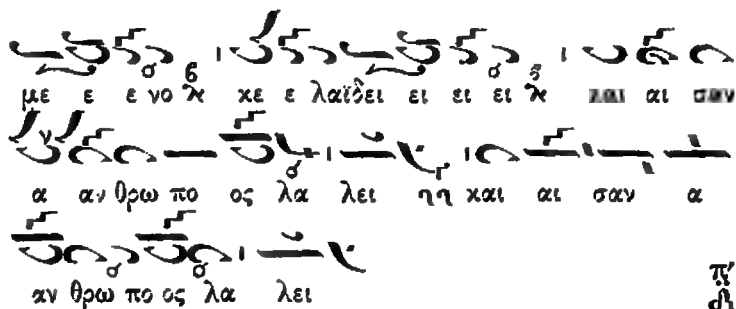 με ε ε νο κε ε λαϊδει ει ει ει και αι σαν
α αν θρω πο ος λα λει ηη και αι σαν α
αν θρω πο ος λα λει πʹ